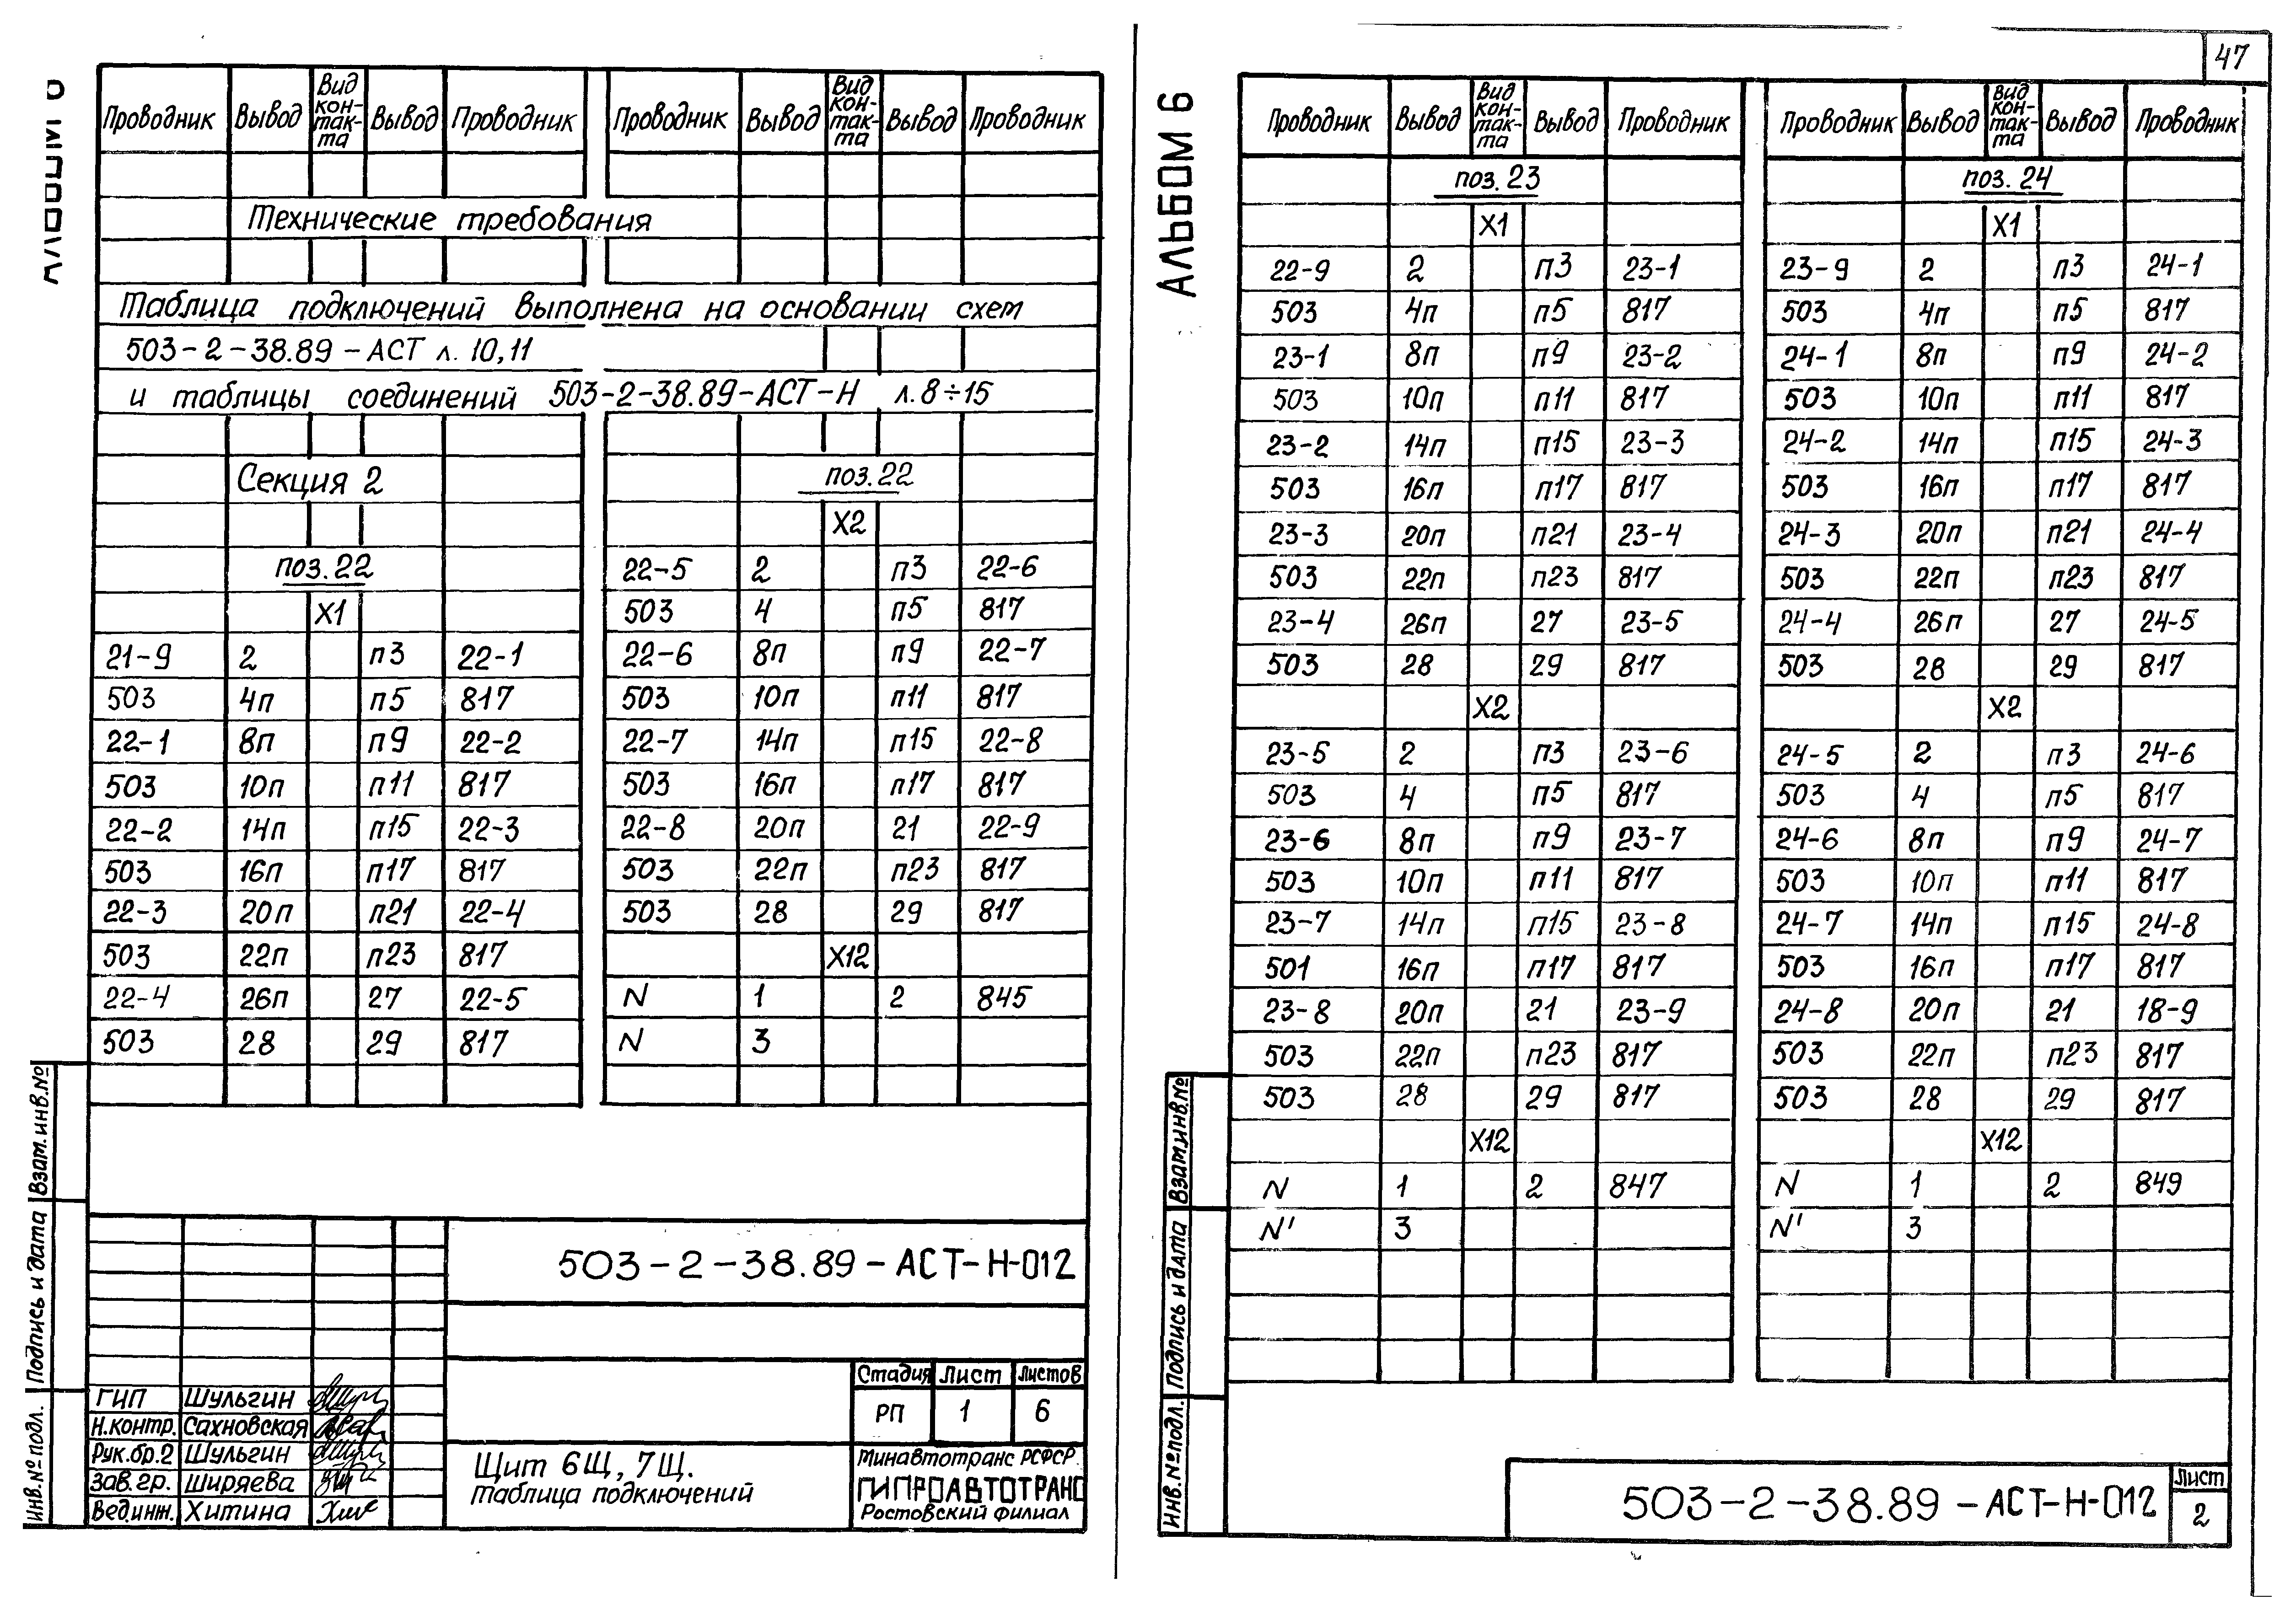 АЛЬБОМ 6
Проводник Вывод Вид контакта Вывод Проводник Проводник Вывод Вид контакта Вывод Проводник
Технические требования
Таблица подключений выполнена на основании схем
503-2-38.89-АСТ л. 10,11
и таблицы соединений 503-2-38.89-АСТ-Н л.8÷15
Секция 2
поз.22
X1
21-9 2 п3 22-1
503 4п п5 817
22-1 8п п9 22-2
503 10п п11 817
22-2 14п п15 22-3
503 16п п17 817
22-3 20п п21 22-4
503 22п п23 817
22-4 26п 27 22-5
503 28 29 817
поз.22
X2
22-5 2 п3 22-6
503 4 п5 817
22-6 8п п9 22-7
503 10п п11 817
22-7 14п п15 22-8
503 16п п17 817
22-8 20п 21 22-9
503 22п п23 817
503 28 29 817
X12
N 1 2 845
N 3
503-2-38.89-АСТ-Н-012
Стадия Лист Листов
РП 1 6
ГИП Шульгин
Н.контр. Сахновская
Рук.бр.2 Шульгин
Зав.гр. Ширяева
Вед.инж. Хитина
Щит 6Щ, 7Щ.
Таблица подключений
Минавтотранс РСФСР
ГИПРОАВТОТРАНС
Ростовский филиал
Инв.№подл. Подпись и дата Взам.инв.№
47
АЛЬБОМ 6
Проводник Вывод Вид контакта Вывод Проводник Проводник Вывод Вид контакта Вывод Проводник
поз.23
X1
22-9 2 п3 23-1
503 4п п5 817
23-1 8п п9 23-2
503 10п п11 817
23-2 14п п15 23-3
503 16п п17 817
23-3 20п п21 23-4
503 22п п23 817
23-4 26п 27 23-5
503 28 29 817
X2
23-5 2 п3 23-6
503 4 п5 817
23-6 8п п9 23-7
503 10п п11 817
23-7 14п п15 23-8
501 16п п17 817
23-8 20п 21 23-9
503 22п п23 817
503 28 29 817
X12
N 1 2 847
N' 3
поз.24
X1
23-9 2 п3 24-1
503 4п п5 817
24-1 8п п9 24-2
503 10п п11 817
24-2 14п п15 24-3
503 16п п17 817
24-3 20п п21 24-4
503 22п п23 817
24-4 26п 27 24-5
503 28 29 817
X2
24-5 2 п3 24-6
503 4 п5 817
24-6 8п п9 24-7
503 10п п11 817
24-7 14п п15 24-8
503 16п п17 817
24-8 20п 21 18-9
503 22п п23 817
503 28 29 817
X12
N 1 2 849
N' 3
Инв.№подл. Подпись и дата Взам.инв.№
503-2-38.89-АСТ-Н-012
Лист
2